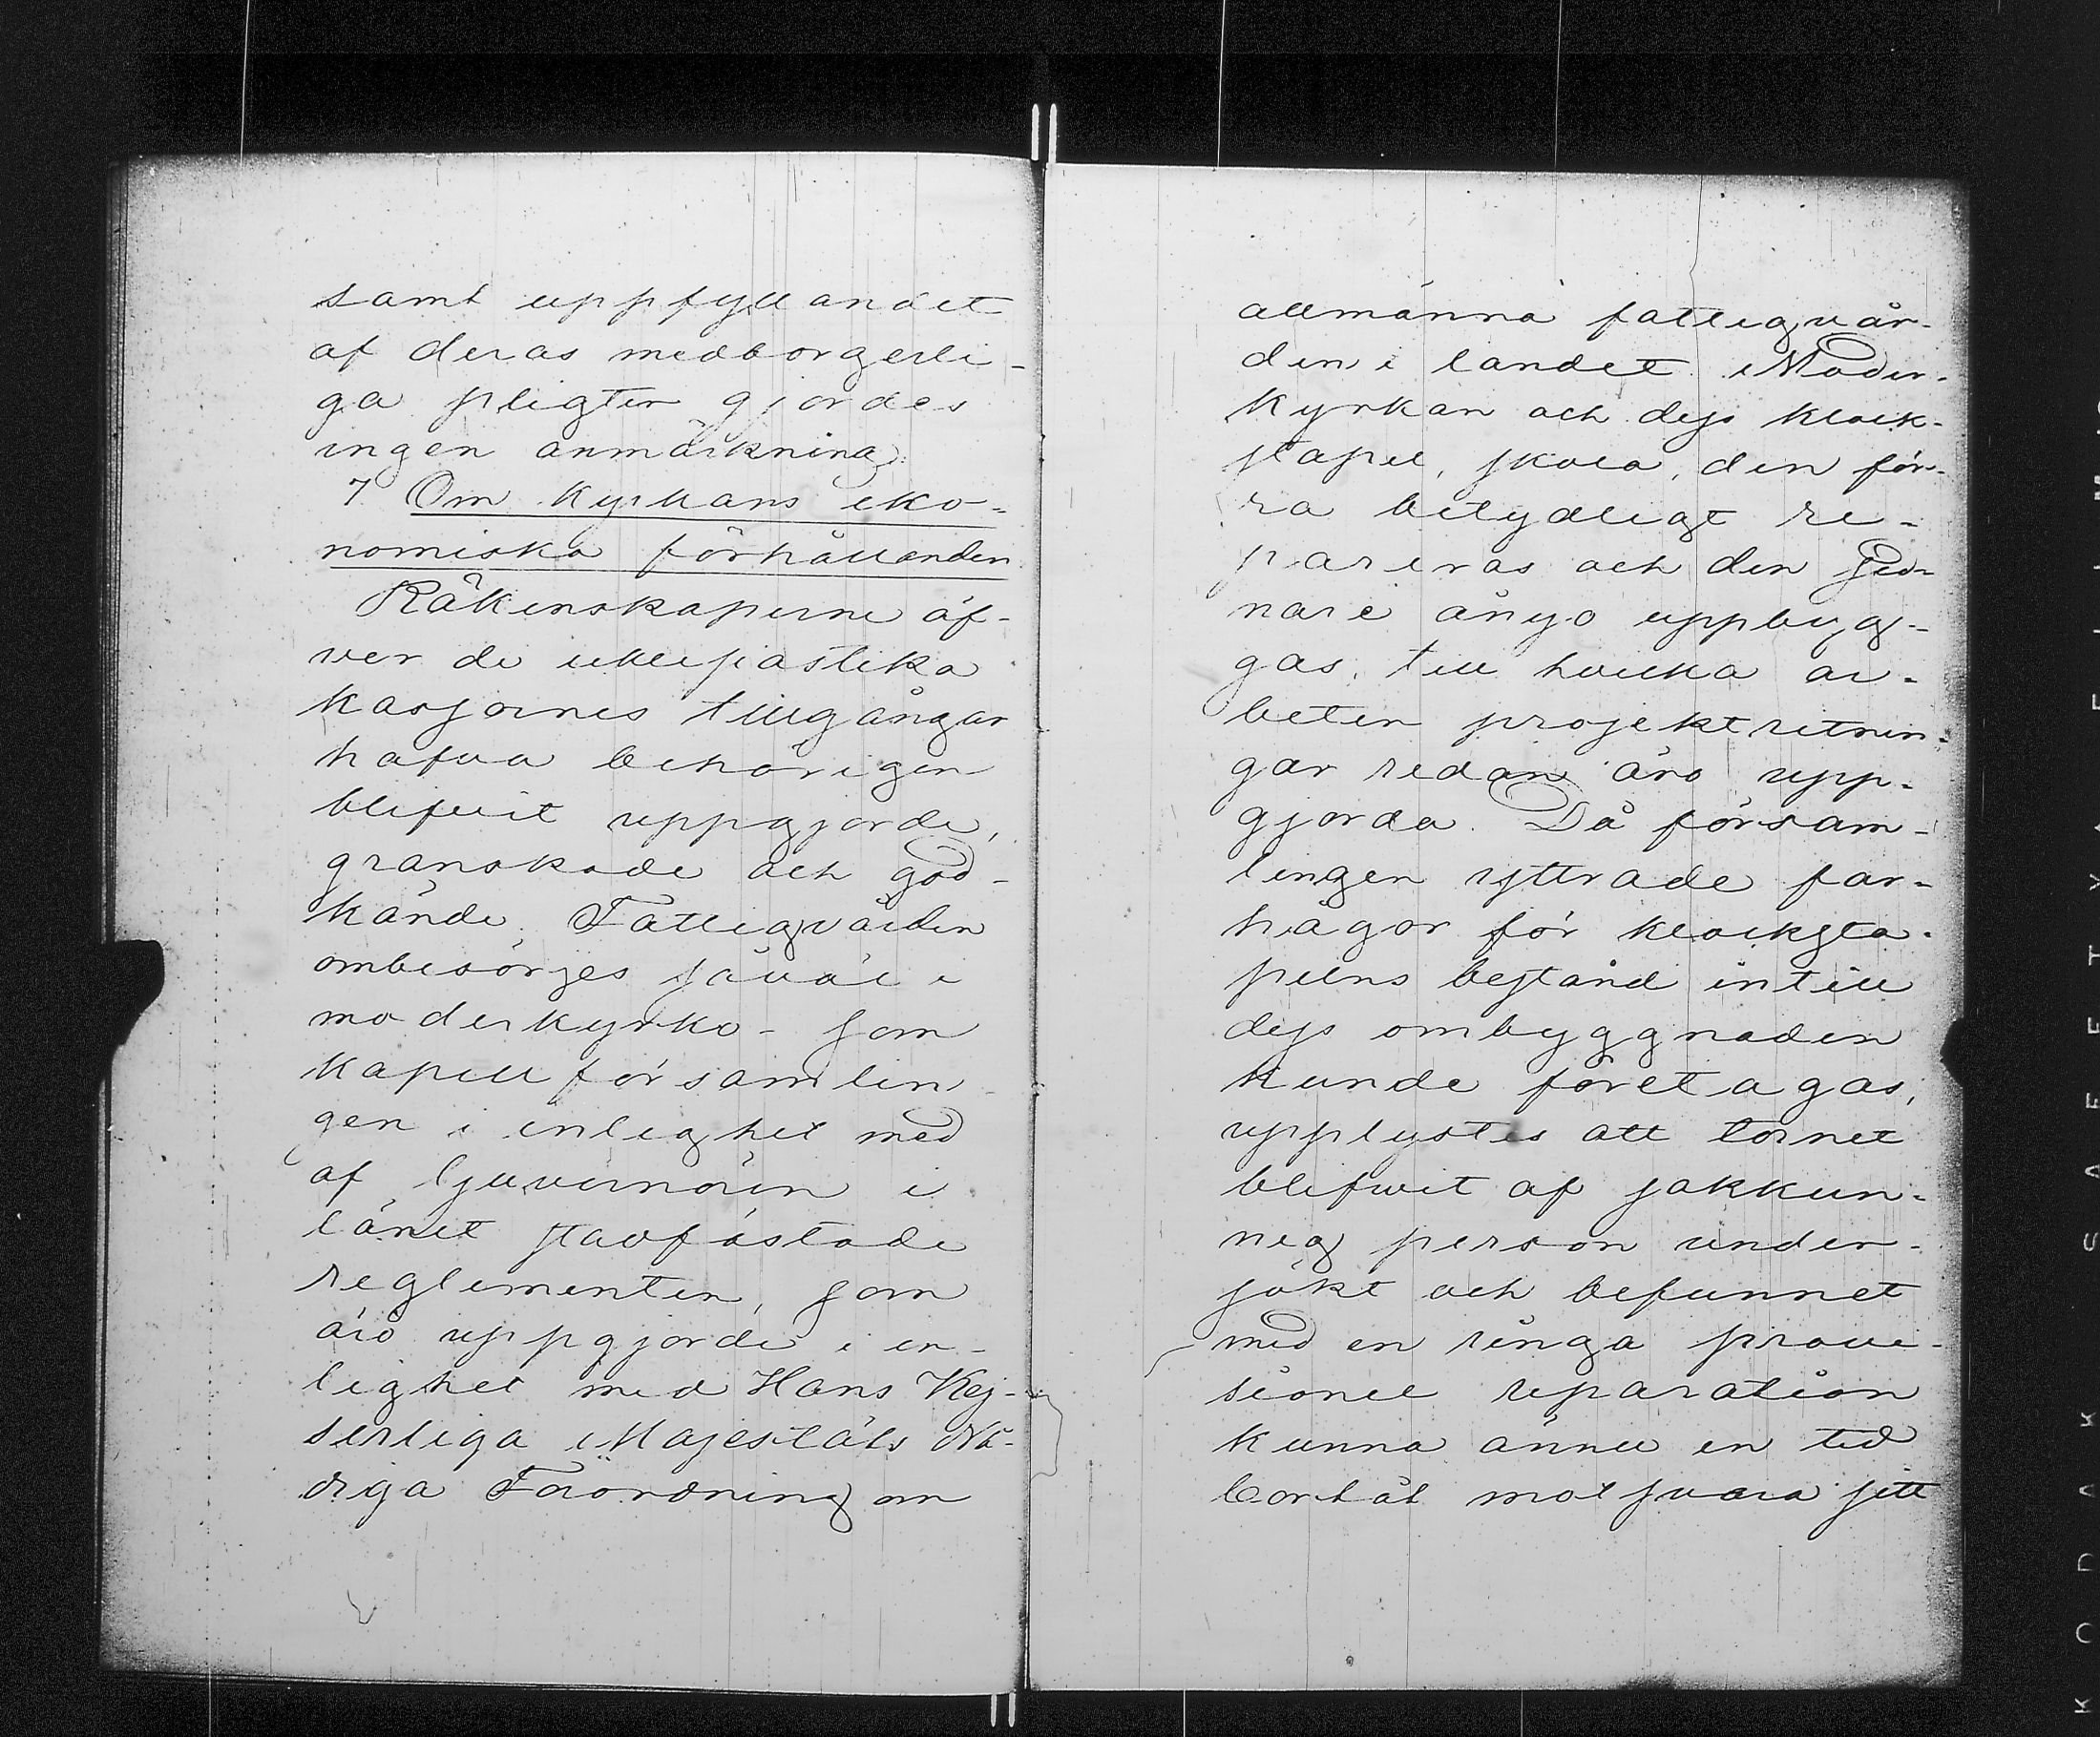 samt uppfyllandet
af deras medborgerli-
ga pligter gjordes
ingen anmärkning.
7 Om kyrkans eko-
nomiska förhållanden
Räkenskaperne öf-
ver de eklesiastika
kassornes tillgångar
hafva behörigen
blifvit uppgjorde,
granskade och god-
kände. Fattigvården
ombesörjes såväl i
moderkyrko- som
kapellförsamlin
gen i enlighet med
af Guvernören i
länet stadfästade
reglementen, som
äro uppgjorde i en-
lighet med Hans Kej-
serliga Majestäts Nå-
diga Förordning om
allmänna fattigvår-
den i landet. Moder-
kyrkan och dess klock-
stapel, skola, den för-
ra betydligt re-
pareras och den sed-
nare ånyo uppbyg-
gas, till hvilka ar-
beten projektritnin-
gar redan äro upp-
gjorda. Då försam-
lingen yttrade far-
hågor för klocksta-
pelns bestånd intill
dess ombyggnaden
kunde företagas,
upplystes att tornet
blifwit af sakkun-
nig person under-
sökt och befunnet
med en ringa provi-
sionel reparation
kunna ännu en tid
bortåt motsvara sitt
KODAK SAFETY FILM